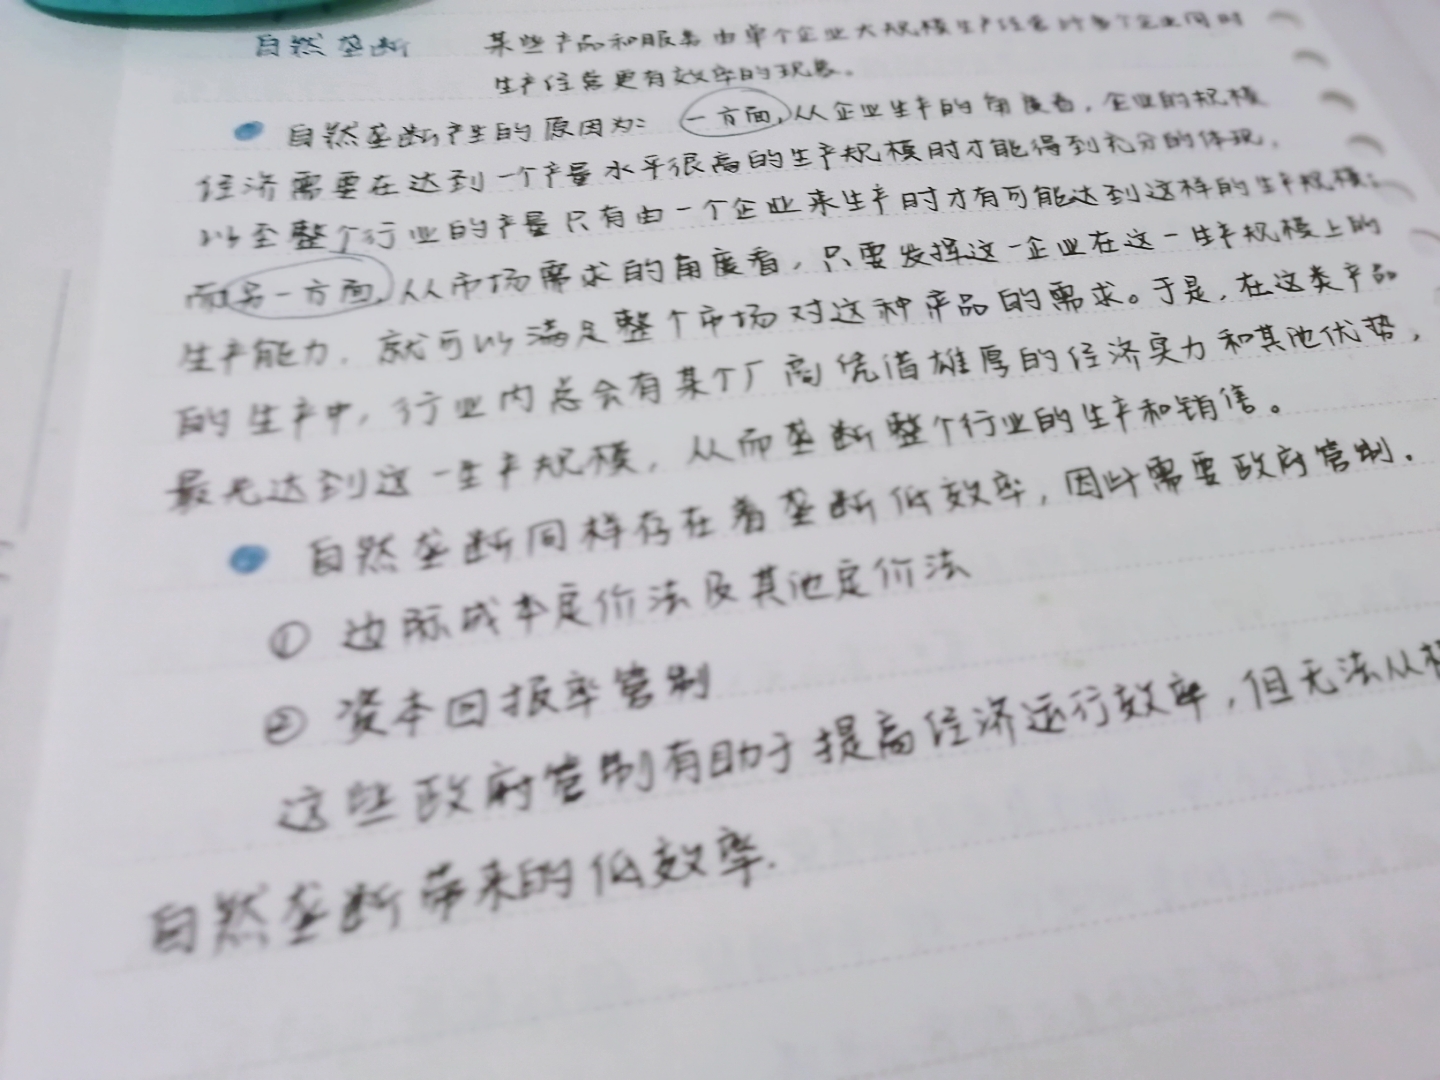 自然垄断 某些产品和服务由单个企业大规模生产经营比多个企业同时
生产经营更有效率的现象。
自然垄断产生的原因为：一方面，从企业生产的角度看，企业的规模
经济需要在达到一个产量水平很高的生产规模时才能得到充分的体现，
以至整个行业的产量只有由一个企业来生产时才有可能达到这样的生产规模；
而另一方面，从市场需求的角度看，只要发挥这一企业在这一生产规模上的
生产能力，就可以满足整个市场对这种产品的需求。于是，在这类产品
的生产中，行业内总会有某个厂商凭借雄厚的经济实力和其他优势，
最先达到这一生产规模，从而垄断整个行业的生产和销售。
自然垄断同样存在着垄断低效率，因此需要政府管制．
① 边际成本定价法及其他定价法
② 资本回报率管制
这些政府管制有助于提高经济运行效率，但无法从
自然垄断带来的低效率．